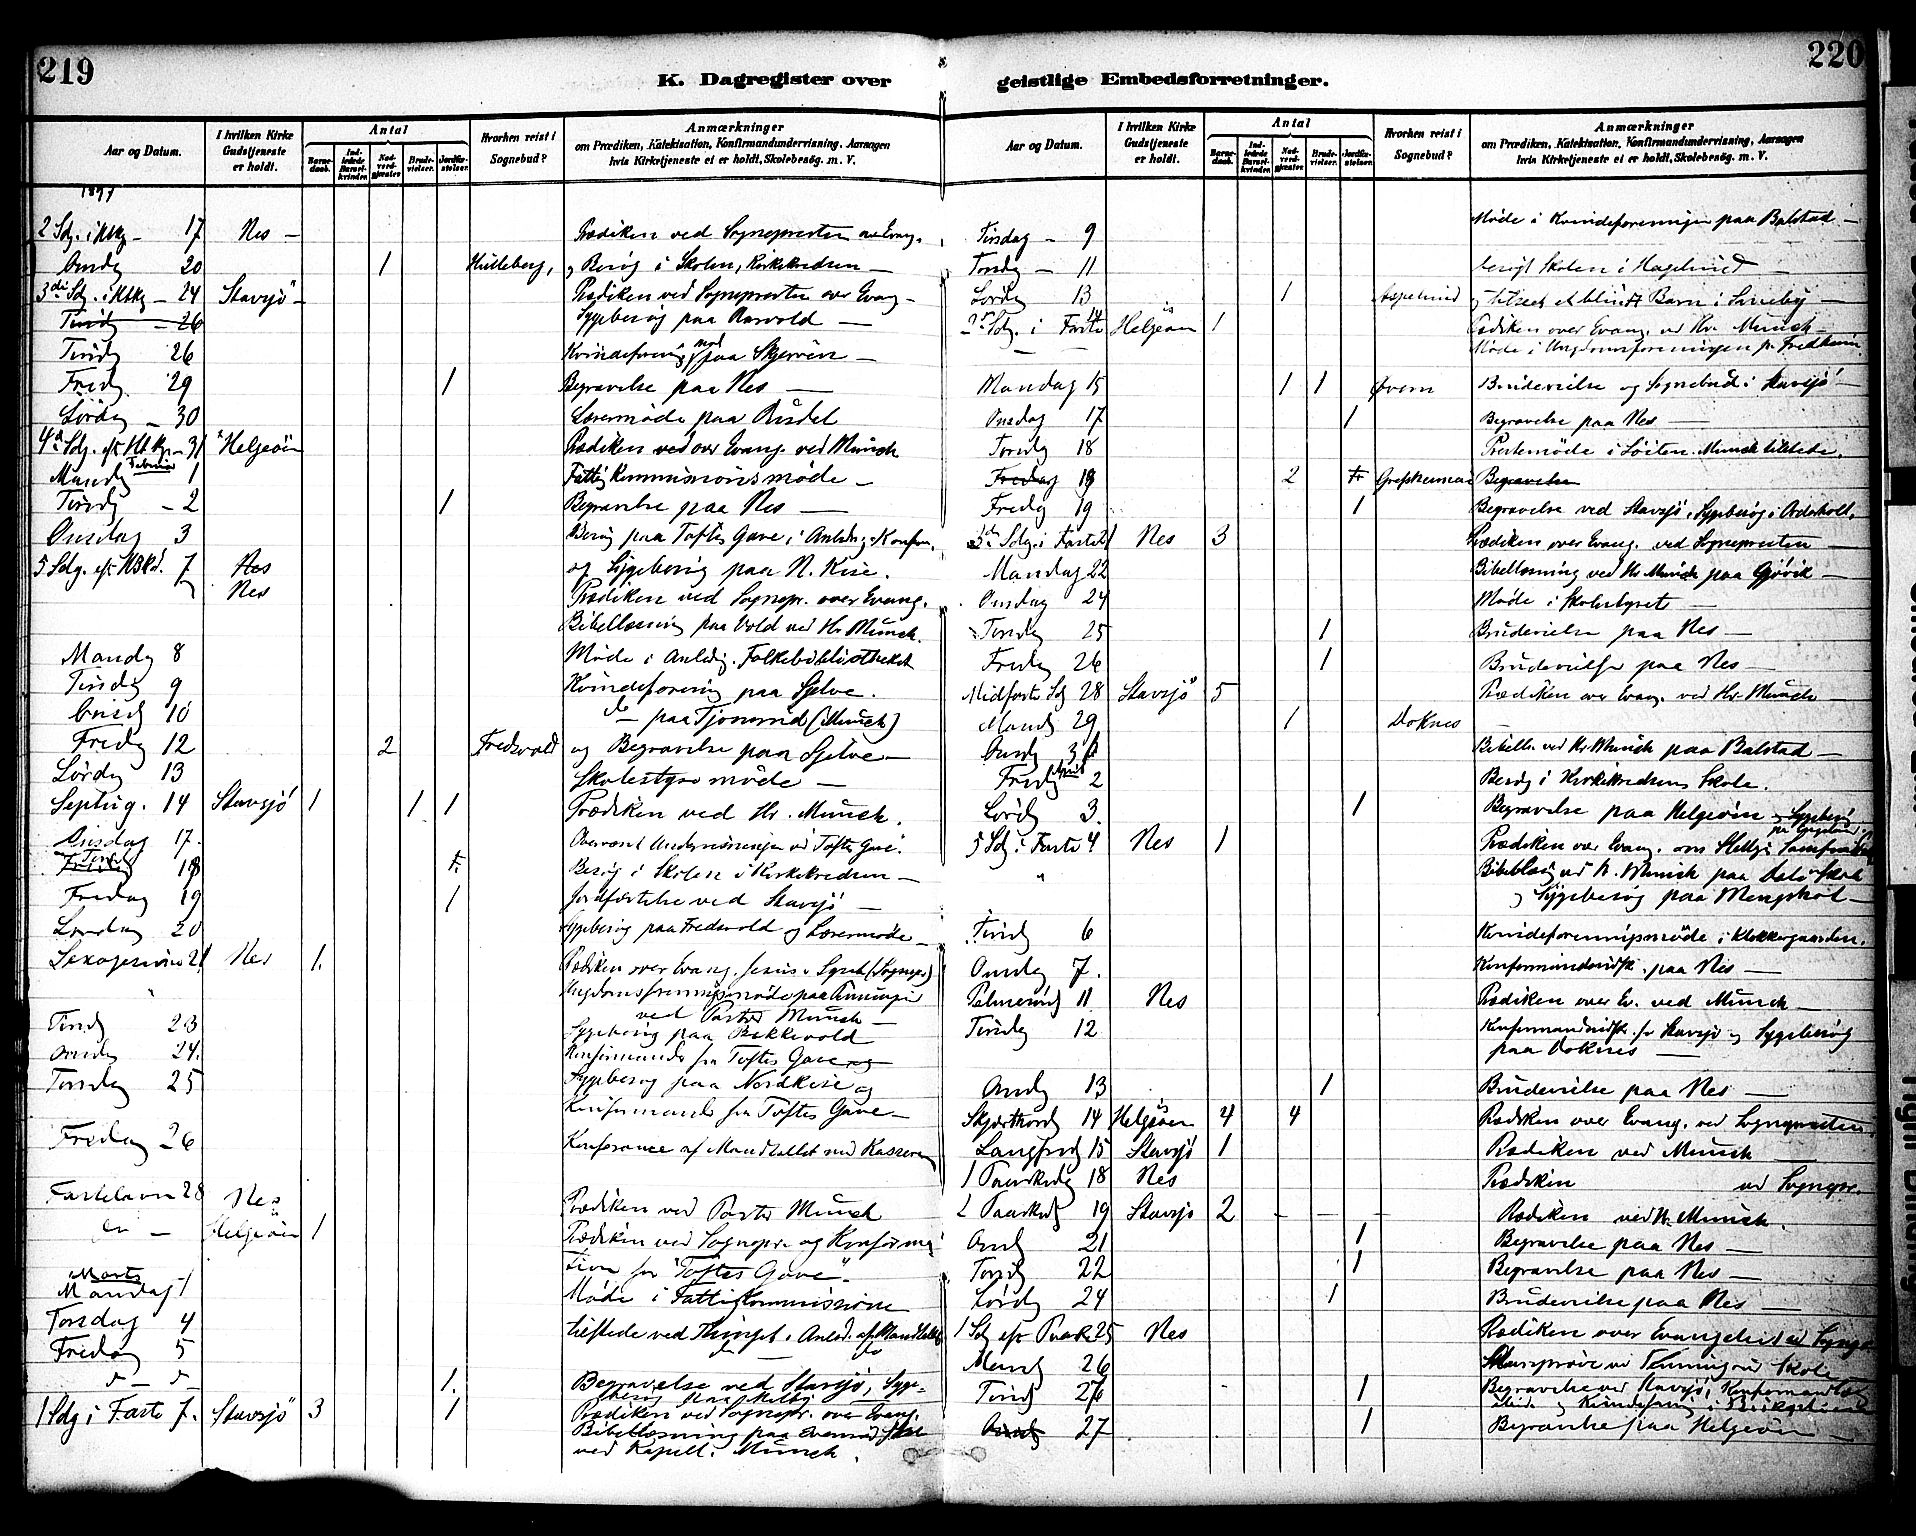 219
K. Dagregister over
Aar og Datum. I hvilken Kirke Gudstjeneste er holdt. Antal Barnedaab. Indledede Barselkvinder. Nadverdgjæster. Brudevielser. Jordfæstelser. Hvorhen reist i Sognebud? Anmærkninger om Prædiken, Katekisation, Konfirmandundervisning, Aarsagen hvis Kirketjeneste ei er holdt, Skolebesøg. m. V.
1897
2 Sdg. i Hkg - 17 Nes - Prædiken ved Sognepresten over Evang.
Onsdg 20 1 Hulleberg, og Besøg i Skolen, Kirkekredsen -
3die Sdg. i Hkg - 24 Stavsjø - Prædiken ved Sognepresten over Evang -
Tirsdg - 26 Sygebesøg paa -
Tirsdg 26 Kvindeforening paa Skjerven -
Fredg 29 1 Begravelse paa Nes -
Lørdg - 30 Lærermøde paa
4de Sdg. eft Htkg - 31 Helgeøen Prædiken ved over Evang. ved Munch
Februar
Mandg 1 Fattigkommissionsmøde -
Tirsdg - 2 1 Begravelse paa Nes -
Onsdag 3 Besøg paa Toftes Gave i Anledng. Konfir.
5 Sdg. eft 7 Nes og Sygebesøg paa N. Kise.
Nes Prædiken ved Sognepr. over Evang.
Bibellæsning paa Vold ved Hr. Munch.
Mandg 8 Møde i Anledg. Folkebibliotheket
Tirsdg 9 Kvindeforening paa Gjelve.
Onsdg 10 do - paa (Munch)
Fredg 12 2 Fredsvold og Begravelse paa Gjelve -
Lørdg 13 Skolestyremøde -
Septuag. 14 Stavsjø 1 1 1 Prædiken ved Hr. Munch.
Onsdag 17. Overvaret Undervisningen ved Toftes Gave.
18 Besøg i Skolen i Kirkekredsen -
Fredag 19 1 Jordfæstelse ved Stavsjø -
Lørdag 20 Sygebesøg paa Fredsvold og Lærermøde -
21 Nes 1. Prædiken over Evang. Jesus (Sognepr)
Ungdomsforeningsmøde paa
Tirsdg 23 ved Pastor Munch -
Sygebesøg paa Bakkevold
Onsdg 24. Konfirmander fra Toftes Gave og
Torsdg 25 Sygebesøg paa Nordkise og
Konfirmander fra Toftes Gave -
Fredag 26 Konferance af Mandtallet med
Fastelavn 28 Nes Prædiken ved Pastor Munch
do - Helgeøen 1 Prædiken ved Sognepr. og Konfirma-
tion for "Toftes Gave".
Marts
Mandag 1 Møde i Fattigkommissionen
Torsdag 4 tilstede ved Thinget i Anled. af Mandtallet
Fredag 5 do - do
do - do 1. Begravelse ved Stavsjø, Syge-
1 Sdg i Faste 7. Stavsjø 3 1 Prædiken ved Sognepr. over Evang.
Bibellæsning paa
ved Kapell. Munch.
220
geistlige Embedsforretninger.
Aar og Datum. I hvilken Kirke Gudstjeneste er holdt. Antal Barnedaab. Indledede Barselkvinder. Nadverdgjæster. Brudevielser. Jordfæstelser. Hvorhen reist i Sognebud? Anmærkninger om Prædiken, Katekisation, Konfirmandundervisning, Aarsagen hvis Kirketjeneste ei er holdt, Skolebesøg. m. V.
Tirsdag - 9 Møde i Kvindeforeningen paa Balstad -
Torsdg - 11 besøgt Skolen i Hagelund -
Lørdg 13 1 og tilseet et blindt Barn i -
2 Sdg. i Faste 14 Helgeøen 1 Prædiken over Evang. ved Hr. Munch -
Møde i Ungdomsforeningen p. Fredheim
Mandag 15 1 1 Øvern Brudevielse og Sognebud i Stavsjø -
Onsdag 17 1 Begravelse paa Nes -
Torsdg 18 Prestemøde i Løiten. Munch tilstede.
Fredag 19 2 Begravelse
Fredg 19 1 Begravelse ved Stavsjø, Sygebesøg i
3die Sdg. i Faste 21 Nes 3 Prædiken over Evang. ved Sognepresten -
Mandag 22 Bibellæsning ved Hr Munch paa Gjøvik -
Onsdag 24 Møde i Skolestyret -
Torsdg 25 1 Brudevielse paa Nes -
Fredg 26 1 Brudevielse paa Nes -
Midfaste Sdg 28 Stavsjø 5 Prædiken over Evang. ved Hr. Munch
Mandg 29 1 Doknes -
Onsdg 31 Bibell. ved Hr Munch paa Balstad -
Fredg April 2 Besøg i Kirkekredsens Skole.
Lørdg 3. 1 Begravelse paa Helgeøen og Sygebesøg
5 Sdg. i Faste 4 Nes 1 Prædiken over Evang. om
Bibellæsg ved Hr. Munch paa Skole
og Sygebesøg paa -
Tirsdg 6 Kvindeforeningsmøde i Klokkergaarden.
Onsdg 7. Konfirmandundv. paa Nes -
Palmesøndg 11 Nes Prædiken over Ev. ved Munch -
Tirsdg 12 for Stavsjø og Sygebesøg
paa Doknes -
Onsdg 13 1 Brudevielse paa Nes -
Skjærthorsd 14 Helgeøen 4 4 Prædiken over Evang. ved Sognepresten.
Langfredg 15 Stavsjø 1 Prædiken ved Munch -
1 Paaskedg 18 Nes Prædiken ved Sognepr.
2 Paaskedg 19 Stavsjø 2 - - - Prædiken ved Hr. Munch.
Onsdg 21 1 Begravelse paa Nes -
Torsdg 22 1 Begravelse paa Nes -
Lørdg 24 1 Brudevielse paa Nes -
1 Sdg eft Paaske 25 Nes Prædiken over Evangeliet ved Sognepr
Mandg 26 ved Skole
Tirsdg 27 1 Begravelse ved Stavsjø,
Onsdg 27 1 Begravelse paa Helgeøen -